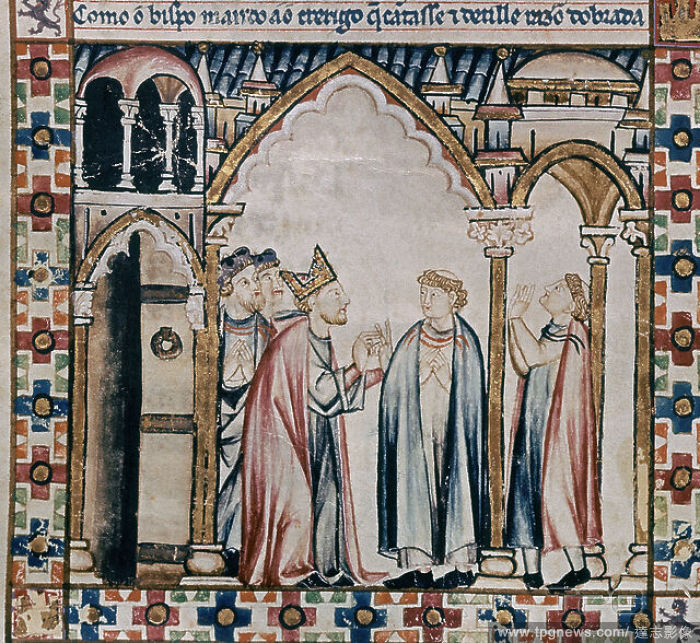 Como o bispo mandoo ao crerigo q̃ cãtasse ⁊ deulle raçõ dobrada
www.tpgnews.com/ 達志影像